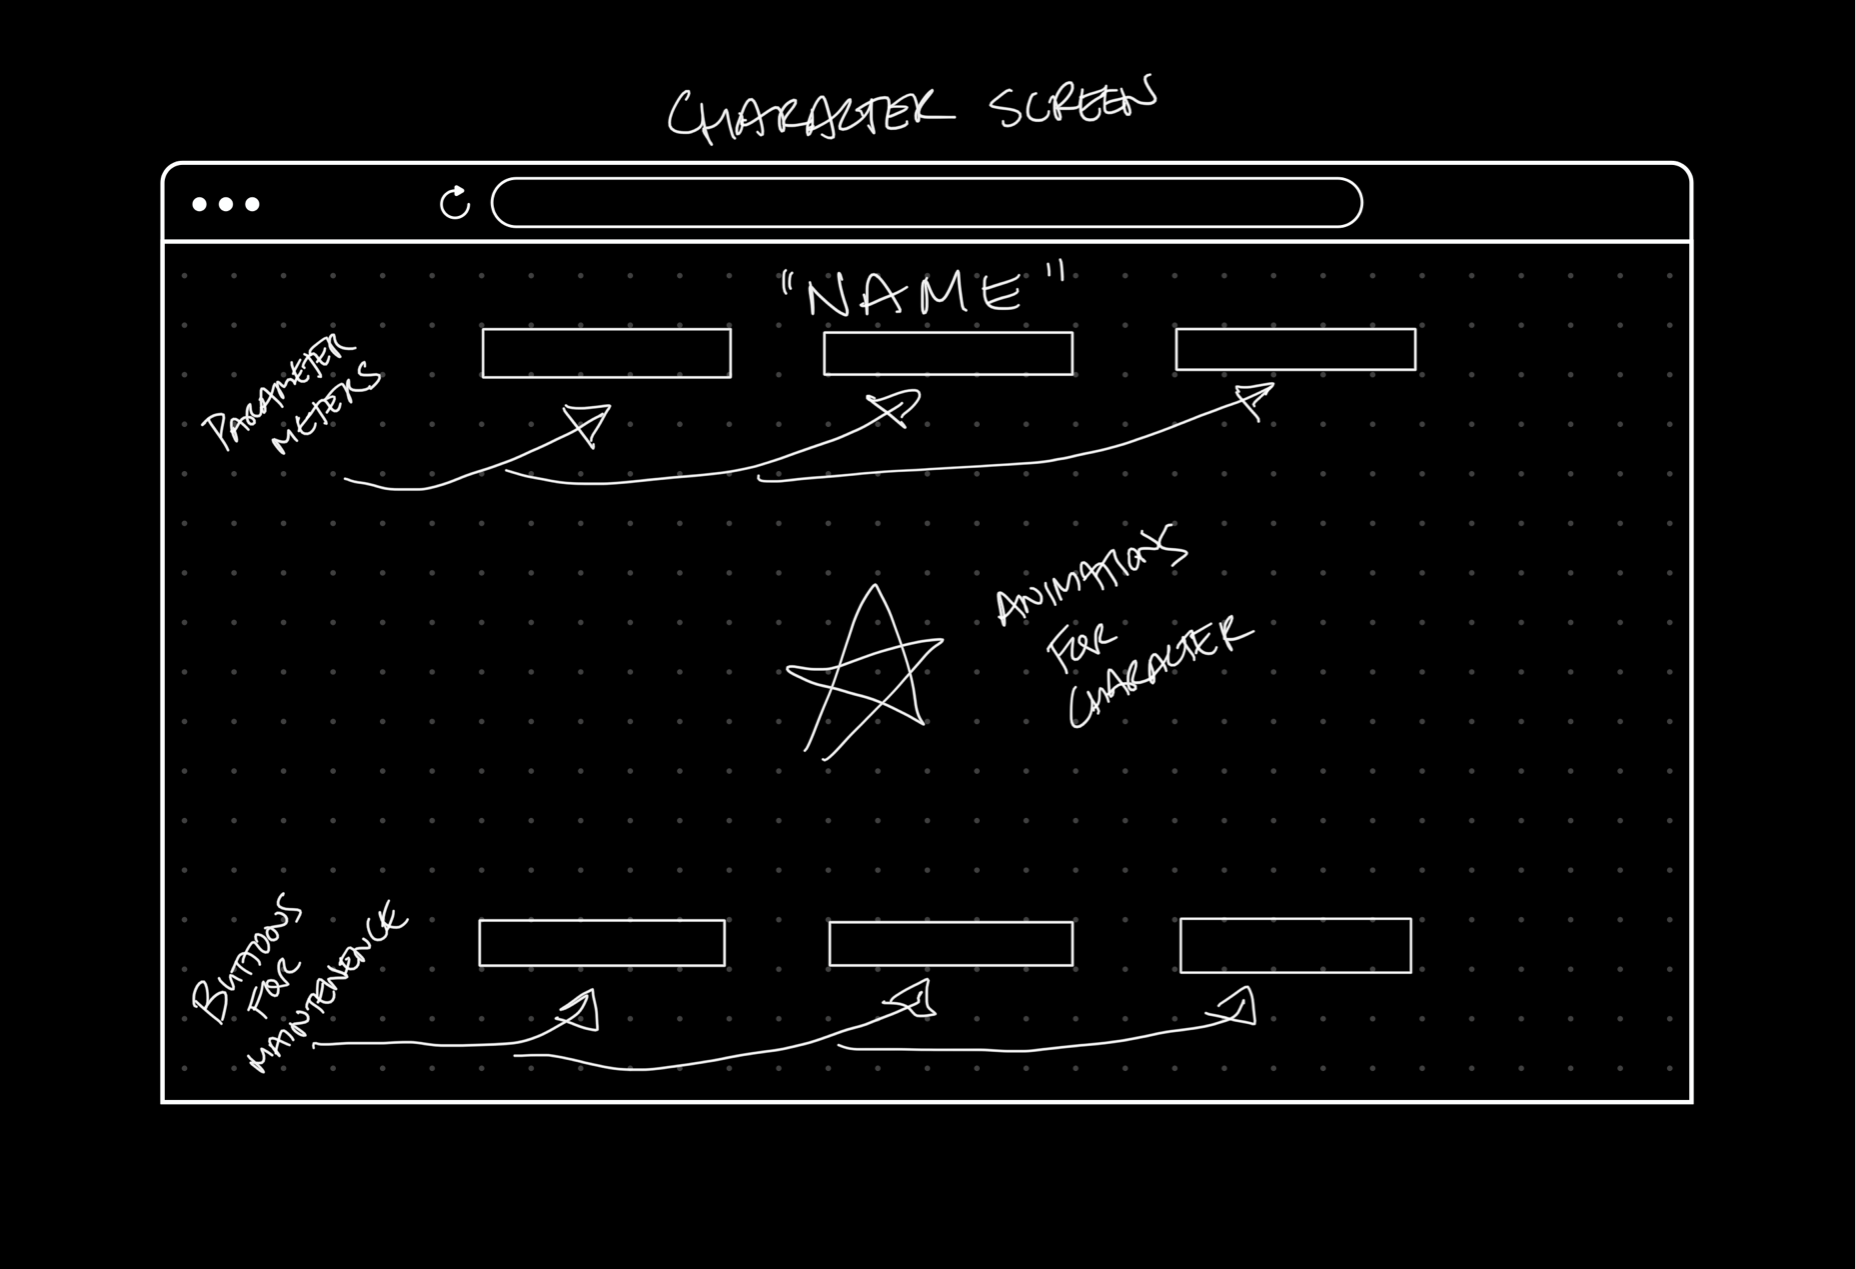 CHARACTER SCREEN
"NAME"
PARAMETER
METERS
ANIMATIONS
FOR
CHARACTER
BUTTONS
FOR
MAINTENENCE